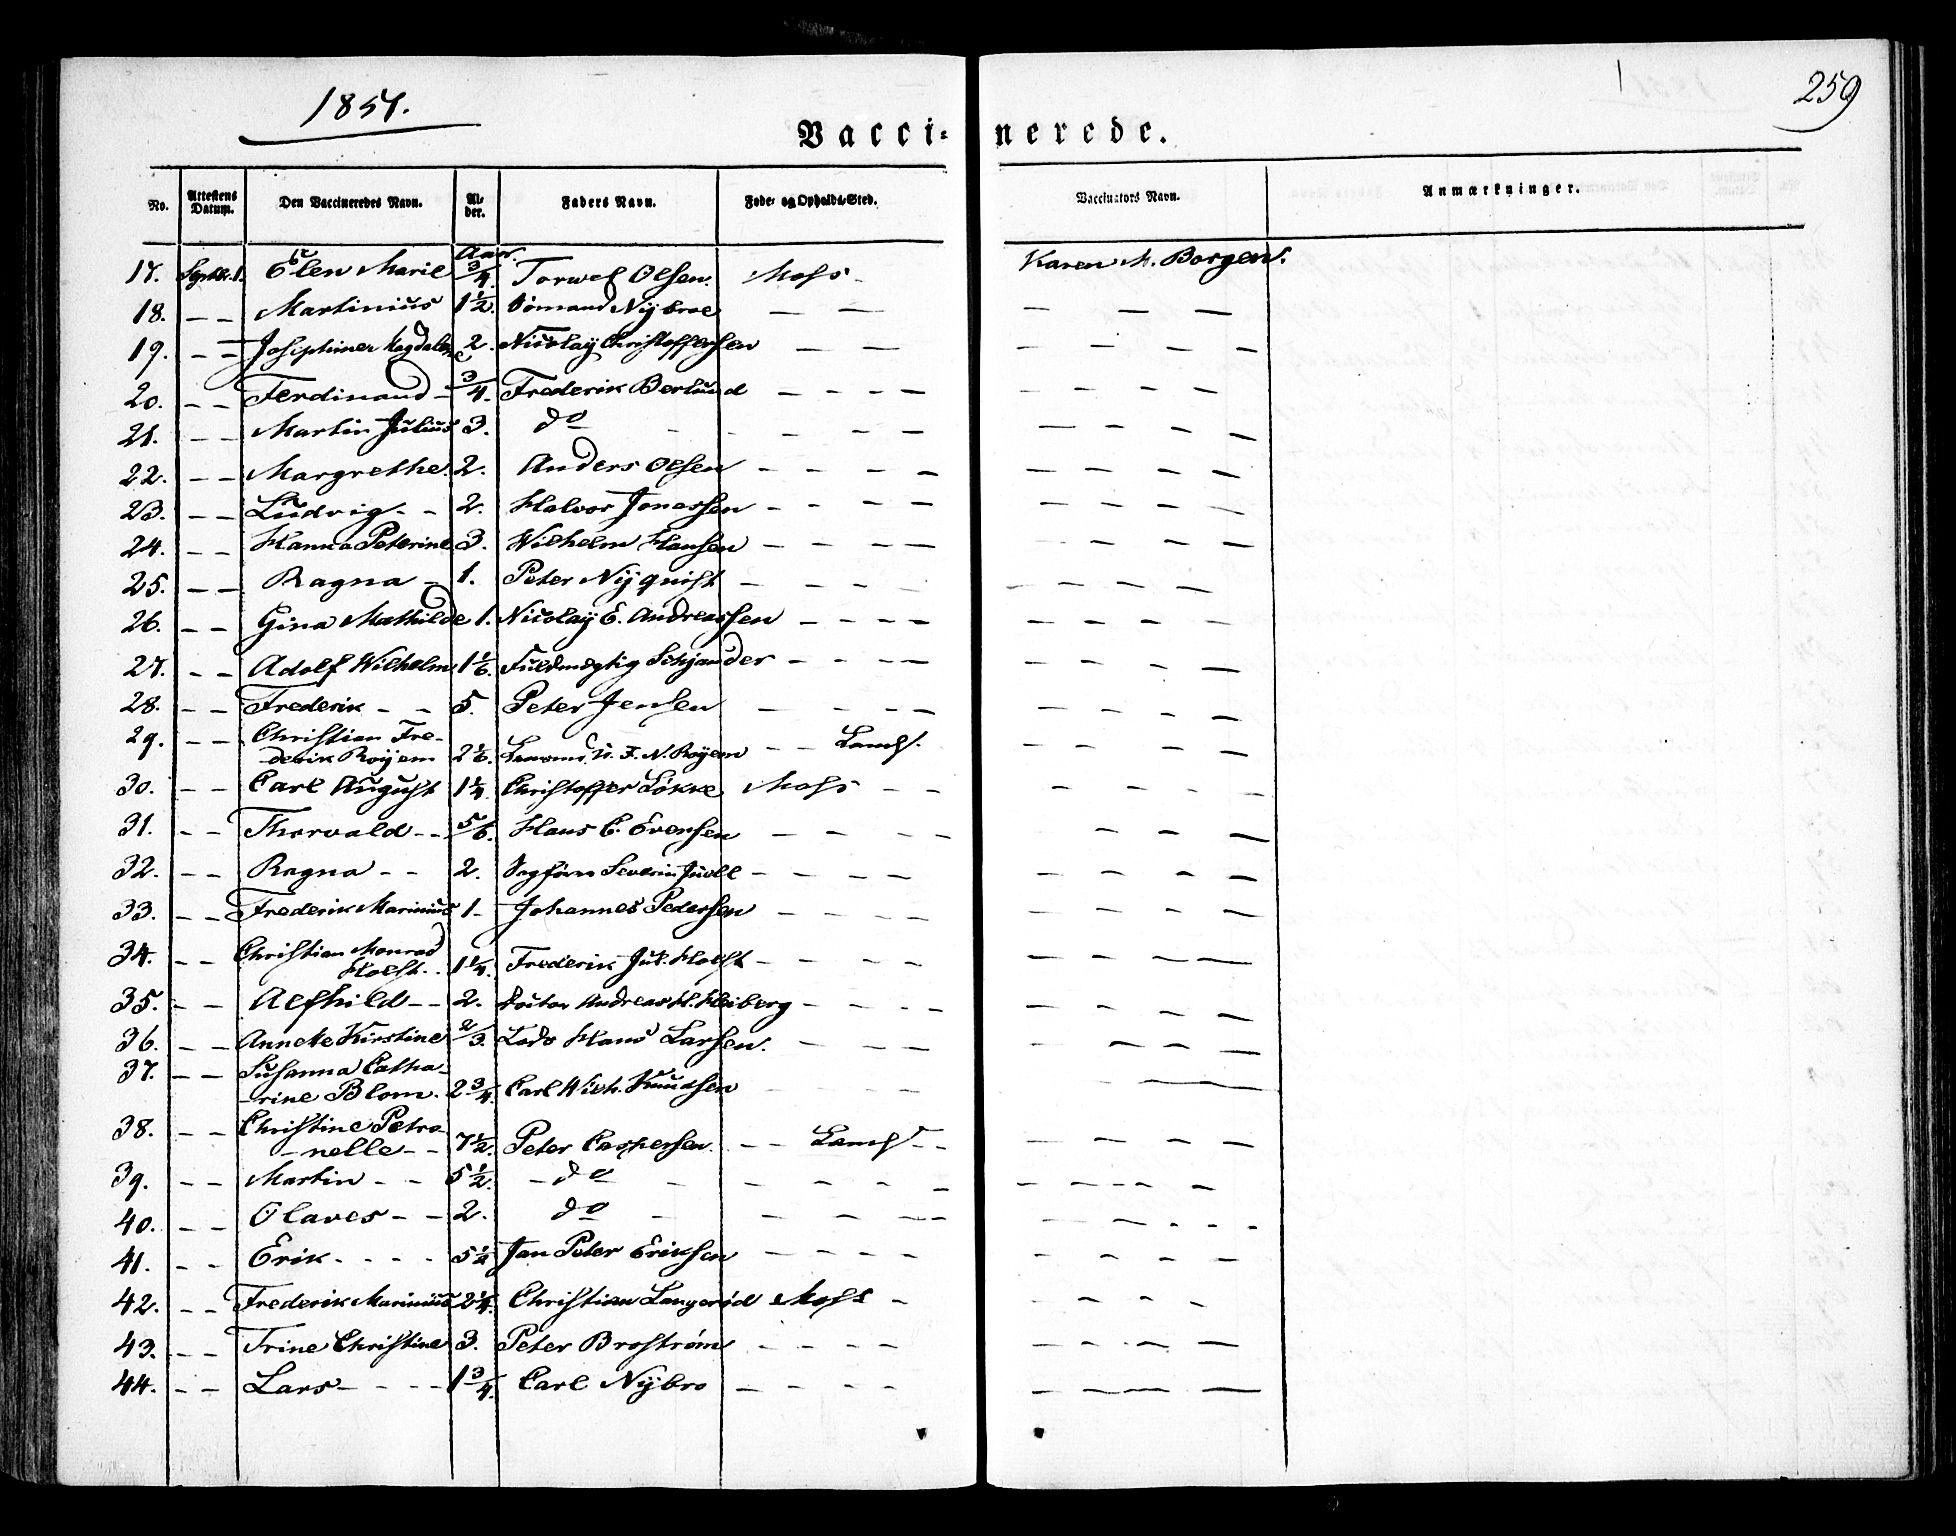 1851.
259
Vacci- nerede.
No. Attestens Datum. Den Vaccineredes Navn. Al- der. Faders Navn. Føde- og Opholds-Sted. Vaccinators Navn. Anmærkninger.
Aar.
17. Septbr. 1. Elen Marie 3/4. Torwel Olsen. Moss - Karen M. Borgen.
18. - - Martinius 1 1/2. Nybroe - - - - -
19. - - Josephine Magdalene 2. Nicolay Christoffersen - - - - - -
20. - - Ferdinand - 3/4. Frederik Berlund - - - - - - - -
21. - - Martin Julius 3. do - - - - - - - - -
22. - - Margrethe. 2. Anders Olsen - - - - - - - -
23. - - Ludvig - - 2. Halvor Jonassen - - - - - - - -
24. - - Hanna Peterine 3. Wilhelm Hansen - - - - - - - -
25. - - Ragna - 1. Peter Nyquist - - - - - - - -
26. - - Gina Mathilde 1. Nicolay E. Andreassen - - - - - - - -
27. - - Adolf Wilhelm 1 1/6. Fuldmægtig Schjander - - - - - - - -
28. - - Frederik - - 5. Peter Jensen - - - - - - - -
29. - - Christian Fre-
derik Røyem 2 1/6. F. N. Røyem - - Landf. - - - -
30. - - Carl August 1 1/4. Christoffer Løkke Moss - - - - - -
31. - - Thorvald - - 5/6. Hans C. Evensen - - - - - - -
32. - - Ragna - - 2. Severin Juell - - - - - - - -
33. - - Frederik Marinius 1 - Johannes Pedersen - - - - - - - -
34. - - Christian Monrad
Holst - - 1 1/4. Frederik Jul. Holst - - - - - - - -
35. - - Alfhild - - 2. Doctor Andreas M. Heiberg - - - - - - - -
36. - - Annete Kirstine 2/3. Lods Hans Larsen. - - - - - - -
37. - - Susanna Catha-
-rine Blom. 2 3/4. Carl Wilh. Knudsen - - - - -
38. - - Christine Petro-
-nelle - - 7 1/2. Peter Caspersen. - - Landf. - - - - - -
39. - - Martin - - 5 1/2. - do - - - - - - - - - -
40. - - Olaves - - 2. do - - - - - - - - - -
41. - - Erik - - - - 5 1/2 Jan Peter Eriksen - - - - - - - -
42. - - Frederik Marinius 2 1/4. Christian Langerød Moss - - - - -
43. - - Trine Christine 3. Peter Brostrøm - - - - - - - -
44. - - Lars - - - - 1 3/4. Carl Nybro - - - - - - - -